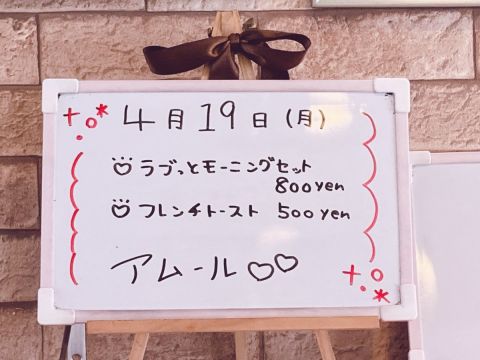 4月19日(月)
ラブっとモーニングセット
800yen
フレンチトースト 500yen
アムール♡♡